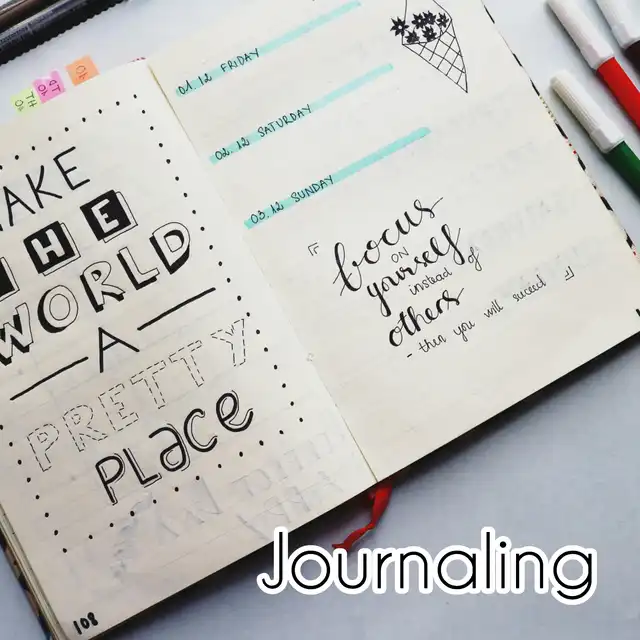 MAKE
THE
WORLD
A
PRETTY
PLACE
108
01. 12 FRIDAY
02. 12 SATURDAY
03. 12 SUNDAY
focus
on
yourself
instead of
others
- then you will succeed
Journaling